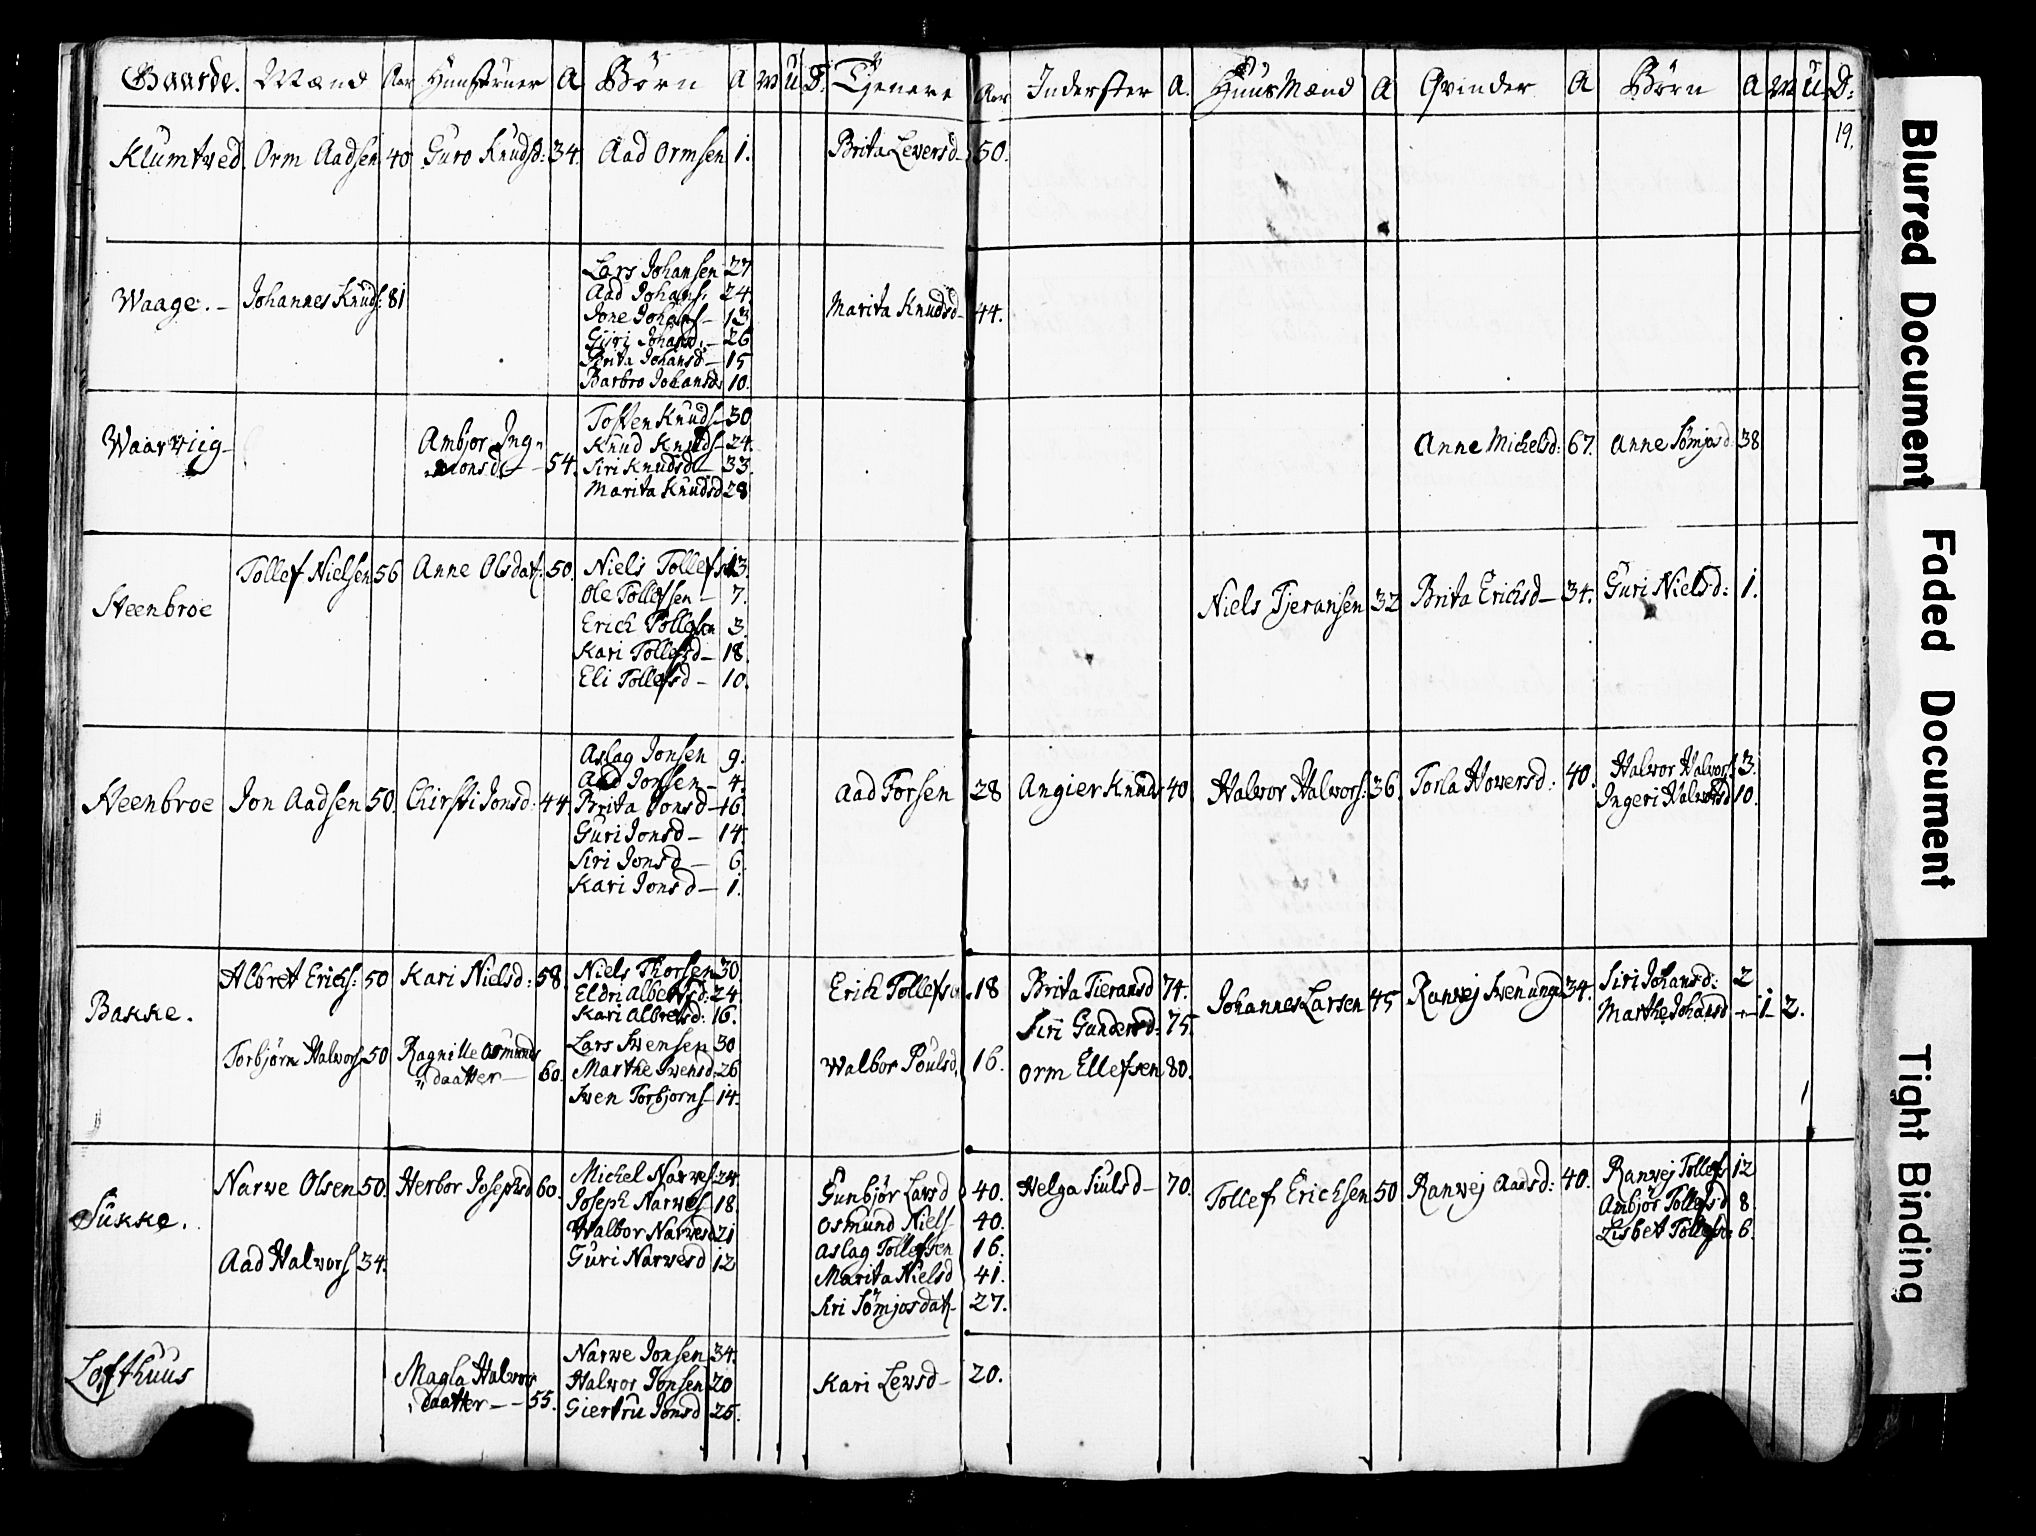 Gaarde. Mænd Aar Hunstruer A Börn A M U D. Tjenere Aar Inderster A. HuusMænd A Qvinder A Börn A M U D:
19.
Klumtved. Orm Aadsen 40 Guro Knudsd: 34. Aad Ormsen 1. Brita Leversd- 50.
Waage. - Johannes Knuds: 81 Marita Knudsd- 44.
Lars Johansen 27
Aad Johans: 24.
Jone Johans- 13
Guri Johansd:- 26
Brita Johansd- 15
Barbro Johansd 10.
Waarviig- Ambjor Ing=
monsd- - 54.
Tosten Knuds- 30
Knud Knuds- 24.
Siri Knudsd- 33.
Marita Knudsd 28
Anne Michelsd: 67. Anne Sømjosd: 38
Steenbroe Tollef Nielsen 56 Anne Olsdat: 50.
Niels Tollefs 13.
Ole Tollefsen - 7.
Erich Tollefsen 3.
Kari Tollefsd- 18.
Eli Tollefsd- 10.
Niels Tjeransen 32 Brita Erichsd- 34. Guri Nielsd: 1.
Steenbroe Jon Aadsen 50. Chirsti Jonsd: 44.
Aslag Jonsen 9.
Aad Jonsen- 4.
Brita Jonsd- 16.
Guri Jonsd- 14.
Siri Jonsd- 6.
Kari Jonsd- 1.
Aad Torsen 28 Angier Knuds 40 Halvor Halvors: 36. Torla Howersd: 40.
Halvor Halvors 3.
Ingeri Halvorsd 10.
Bakke.
Albret Erichs: 50 Kari Nielsd: 58.
Niels Thorsen 30
Eldri Albretsd: 24.
Kari Albretsd: 16.
Torbjörn Halvors 50 Ragnille Osmunds
"daatter- 60.
Lars Swensen 30
Marthe Swensd: 26
Swen Torbjorns- 14.
Erich Tollefsen 18
Walbor Poulsd. 16.
Brita Tieransd 74.
Siri Gundersd: 75.
Orm Ellefsen 80.
Johannes Larsen 45 Ranvej Swenungs 34.
Siri Johansd: 2
Marthe Johansd - 1 - 2.
Sukke.
Narve Olsen 50. Herbor Josephsd 60.
Michel Narves: 24.
Joseph Narves- 18.
Walbor Narvesd 21
Guri Narvesd 12
Aad Halvors 34.
Gunbjør Larsd 40.
Osmund Niels- 40.
Aslag Tollefsen 16.
Marita Nielsd 41.
Siri Sømjosdat- 27.
Helga Siulsd- 70. Tollef Erichsen 50 Ranvej Aadsd: 40.
Ranvej Tollefs 12
Ambjør Tollefsd 8.
Lisbet Tollefsd: 6.
Lofthuus
Magla Halvors
daatter - - 55.
Narve Jonsen 34.
Halvor Jonsen 20
Giertru Jonsd 25.
Kari Levsd- 20.
Blurred Document
Faded Document
Tight Binding